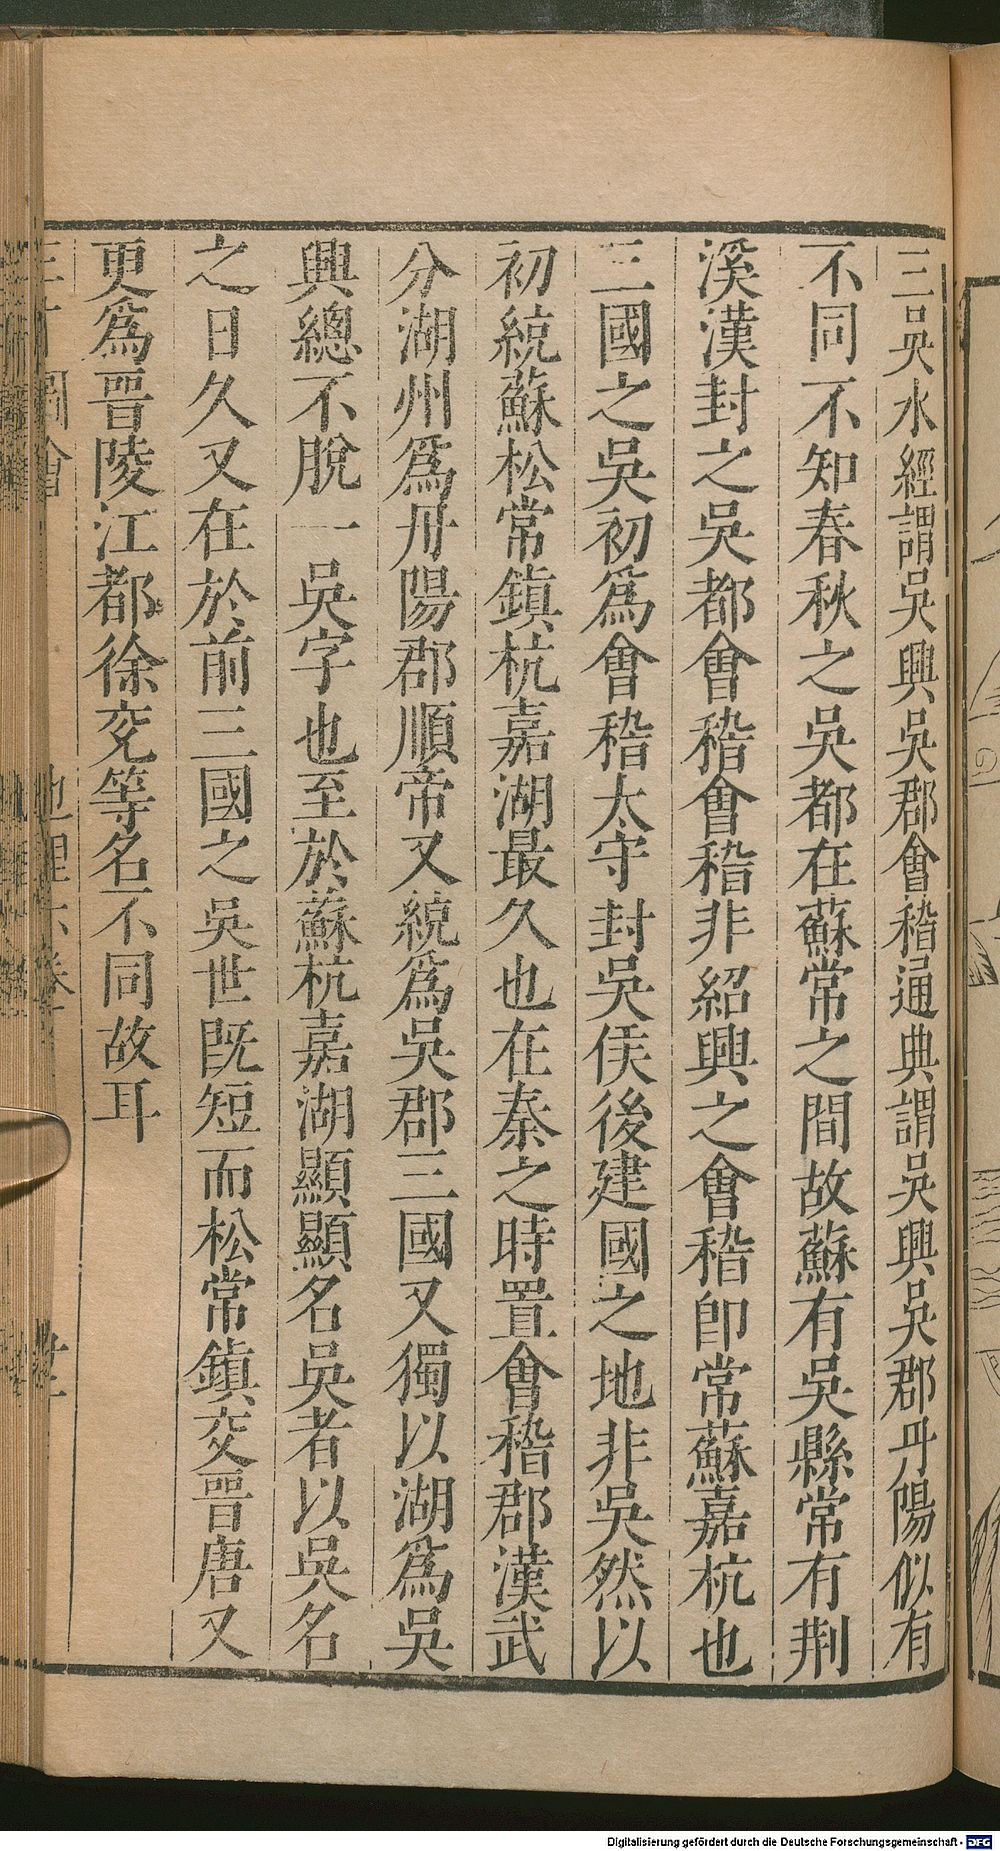 三吳水經謂吳興吳郡會稽通典謂吳興吳郡丹陽似有
不同不知春秋之吳都在蘇常之間故蘇有吳縣常有荆
溪漢封之吳都會稽會稽非紹興之會稽即常蘇嘉杭也
三國之吳初爲會稽太守封吳侯後建國之地非吳然以
初統蘇松常鎮杭嘉湖最久也在秦之時置會稽郡漢武
分湖州爲丹陽郡順帝又統爲吳郡三國又獨以湖爲吳
興總不脫一吳字也至於蘇杭嘉湖顯顯名吳者以吳名
之日久又在於前三國之吳世既短而松常鎮交晉唐又
更爲晉陵江都徐兗等名不同故耳
圖會
地理六卷
Digitalisierung gefördert durch die Deutsche Forschungsgemeinschaft - DFG